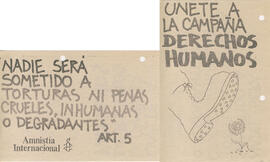 "NADIE SERÁ
SOMETIDO A
TORTURAS NI PENAS
CRUELES, INHUMANAS
O DEGRADANTES"
ART. 5
Amnistía
Internacional
UNETE A
LA CAMPAÑA
DERECHOS
HUMANOS